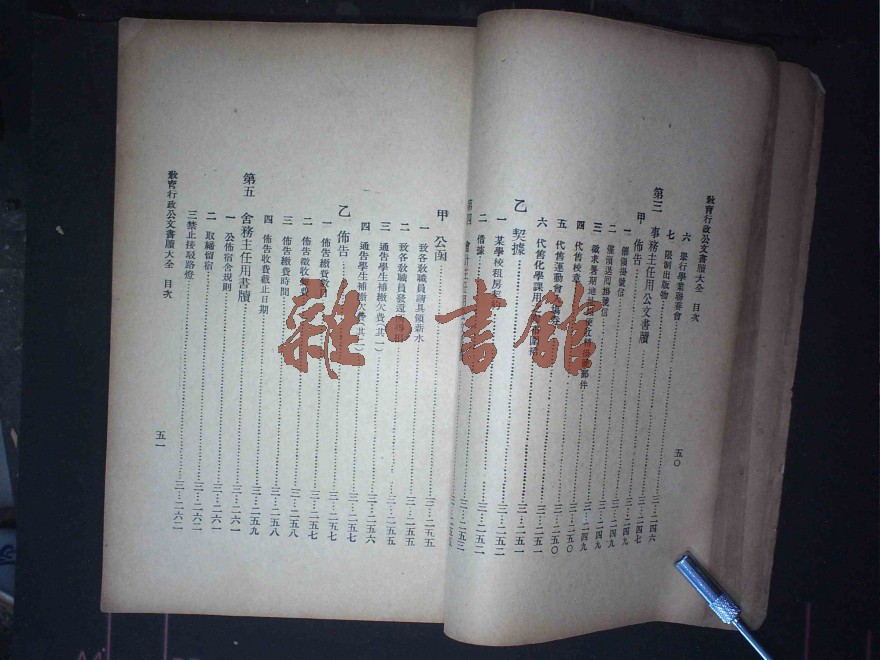 教育行政公文書牘大全 目次 五〇
六 舉行學業聯賽會
七 限制出版物 三…二四六
第三 事務主任用公文書牘 三…二四七
甲 佈告
一 催領掛號信 三…二四九
二 催領送回掛號信 三…二四九
三 徵求暑期地址 郵件 三…二四九
四 代舊校章 三…二五〇
五 代舊運動會 三…二五〇
六 代舊化學課用 三…二五一
乙 契據 三…二五一
一 某學校租房 三…二五二
二 借據 三…二五二
第四
甲 公函
一 致各教職員請具領薪水 三…二五五
二 致各教職員發還 三…二五五
三 通告學生補繳欠費(其一) 三…二五五
四 通告學生補繳欠費(其二) 三…二五六
乙 佈告 三…二五七
一 佈告繳費數目 三…二五七
二 佈告徵收 三…二五七
三 佈告繳費時間 三…二五八
四 佈告收費截止日期 三…二五八
第五 舍務主任用書牘 三…二五九
一 公佈宿舍規則 三…二六一
二 取締留宿 三…二六一
三 禁止接駁路燈 三…二六二
教育行政公文書牘大全 目次 五一
雜·書館